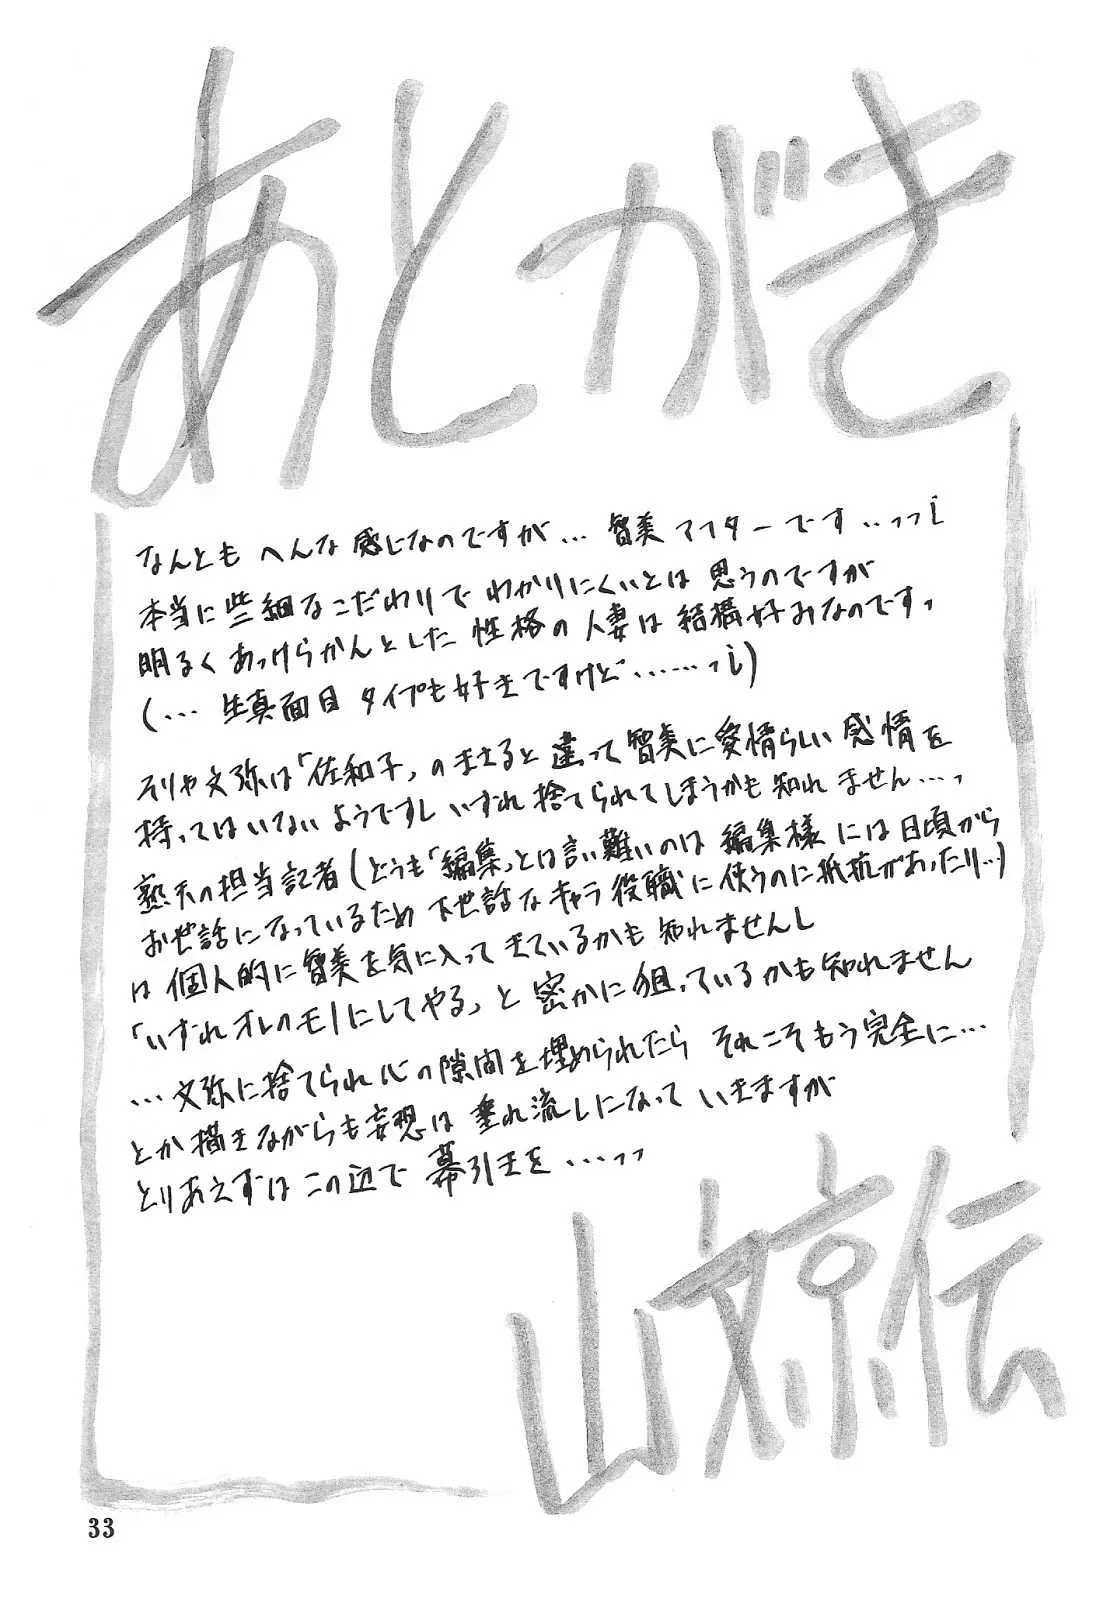 あとがき
なんとも へんな 感じなのですが… 智美アフターです…っっ!
本当に些細なこだわりで わかりにくいとは 思うのですが
明るく あっけらかんとした 性格の 人妻は 結構好みなのです、
(… 生真面目 タイプも好きですけど……っ!)
そりゃ文弥は「佐和子」の まさると 違って 智美に愛情らしい 感情を
持ってはいないようですし いずれ 捨てられてしまうかも 知れ ません…、
熟天の担当記者(どうも「編集」とは言い難いのは 編集様 には 日頃から
お世話になっているため 下世話な キャラ 役職に 使うのに抵抗があったり…)
は 個人的に 智美を気に入って きているかも 知れませんし
「いずれ オレのモノにしてやる」と 密かに 狙っているかも知れません
… 文弥に 捨てられ 心の 隙間を埋められたら それこそもう完全に…
とか 描きながらも妄想は 垂れ流しになって いきますが
とりあえずは この辺で 幕引きを …っっ
山文京伝
33